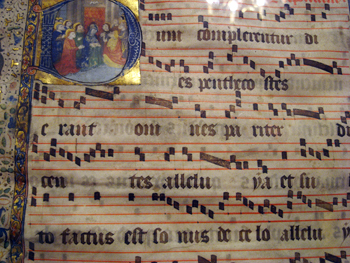 um complerentur di
es penthecostes
e rant om nes pa riter di
cen tes allelu ya et su
to factus est so nus de ce lo allelu y